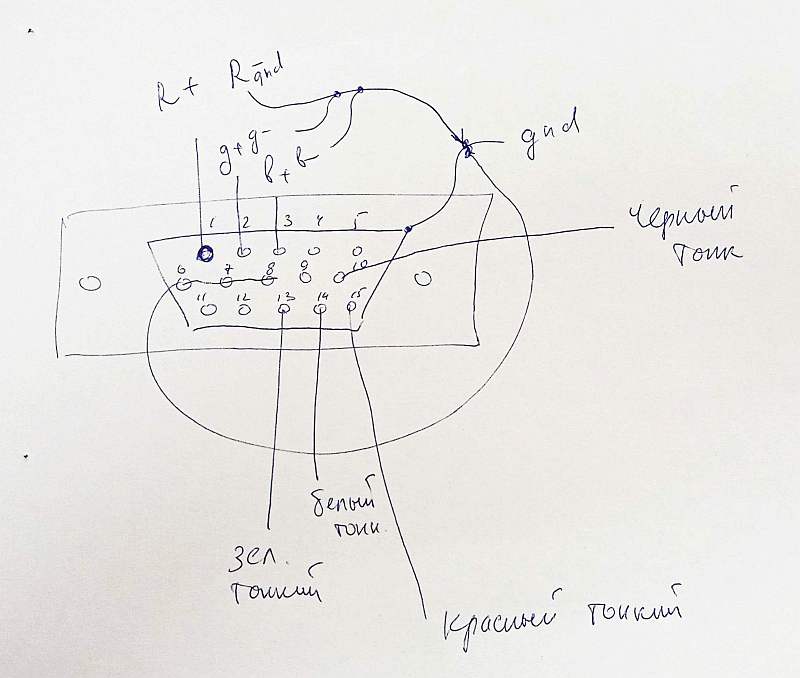 R+ R gnd
g+ g-
b+ b-
gnd
1 2 3 4 5
черный
тонк
6 7 8 9 10
11 12 13 14 15
белый
тонк.
зел.
тонкий
красный тонкий